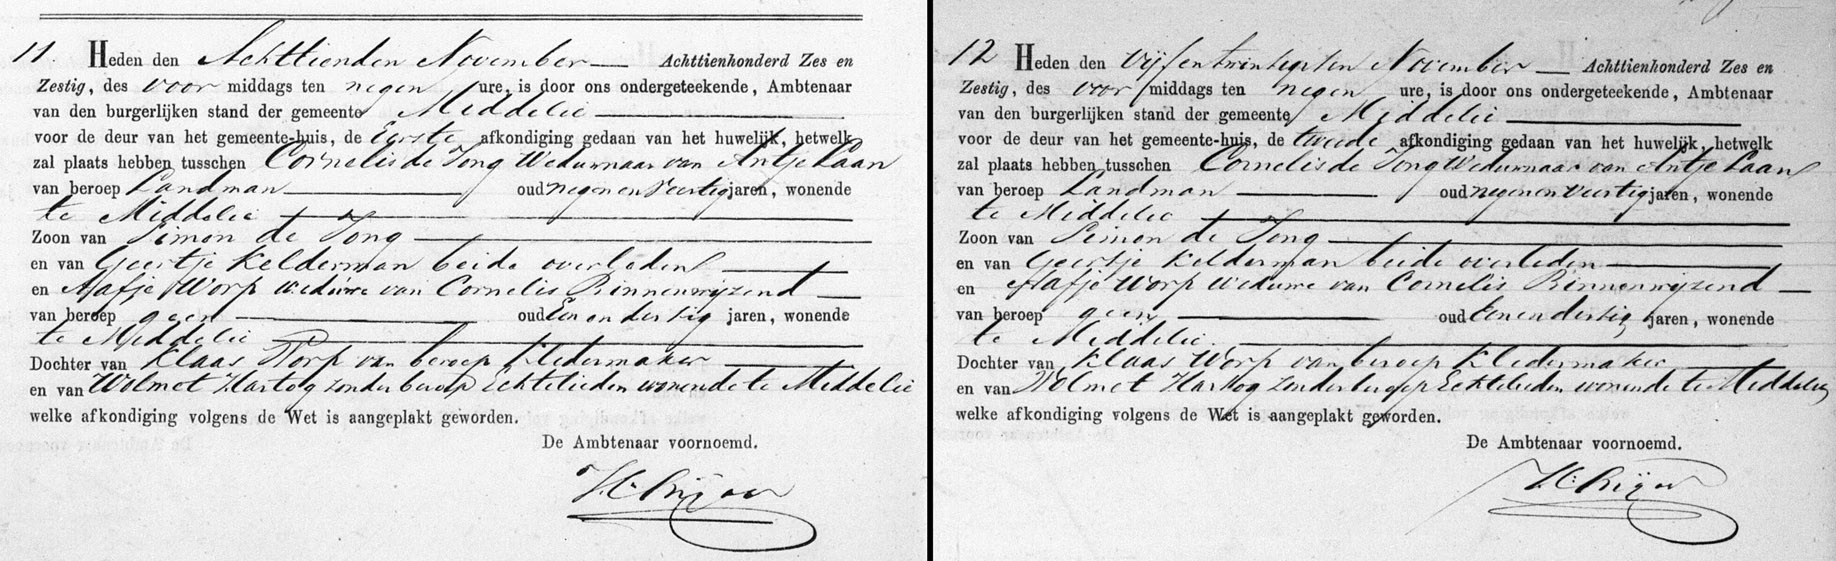 11. Heden den Achttienden November Achttienhonderd Zes en
Zestig, des voor middags ten negen ure, is door ons ondergeteekende, Ambtenaar
van den burgerlijken stand der gemeente Middelie
voor de deur van het gemeente-huis, de Eerste afkondiging gedaan van het huwelijk, hetwelk
zal plaats hebben tusschen Cornelis de Jong Weduwnaar van Antje Laan
van beroep Landman oud negen en veertig jaren, wonende
te Middelie
Zoon van Simon de Jong
en van Geertje Kelderman beide overleden
en Aafje Worp weduwe van Cornelis Binnenwijzend
van beroep geen oud Een en dertig jaren, wonende
te Middelie
Dochter van Klaas Worp van beroep Kledermaker
en van Wolmet Hartog zonder beroep Echtelieden wonende te Middelie
welke afkondiging volgens de Wet is aangeplakt geworden.
De Ambtenaar voornoemd.
12 Heden den vijf en twintigsten November Achttienhonderd Zes en
Zestig, des voor middags ten negen ure, is door ons ondergeteekende, Ambtenaar
van den burgerlijken stand der gemeente Middelie
voor de deur van het gemeente-huis, de tweede afkondiging gedaan van het huwelijk, hetwelk
zal plaats hebben tusschen Cornelis de Jong Weduwnaar van Antje Laan
van beroep Landman oud negen en veertig jaren, wonende
te Middelie
Zoon van Simon de Jong
en van Geertje Kelderman beide overleden
en Aafje Worp Weduwe van Cornelis Binnenwijzend
van beroep geen oud Een en dertig jaren, wonende
te Middelie.
Dochter van Klaas Worp van beroep Kledermaker
en van Wolmet Hartog zonder beroep Echtelieden wonende te Middelie
welke afkondiging volgens de Wet is aangeplakt geworden.
De Ambtenaar voornoemd.